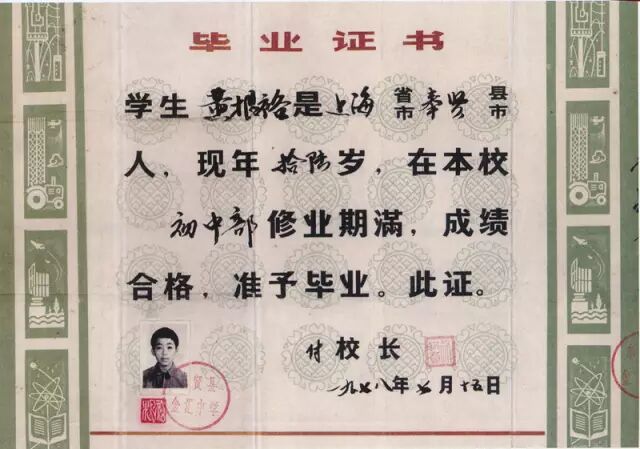 毕业证书
学生 黄根裕是上海 省市 奉贤 县市
人，现年拾陆岁，在本校
初中部修业期满，成绩
合格，准予毕业。此证。
付校长
一九七八年七月十五日
贤县
金汇中学